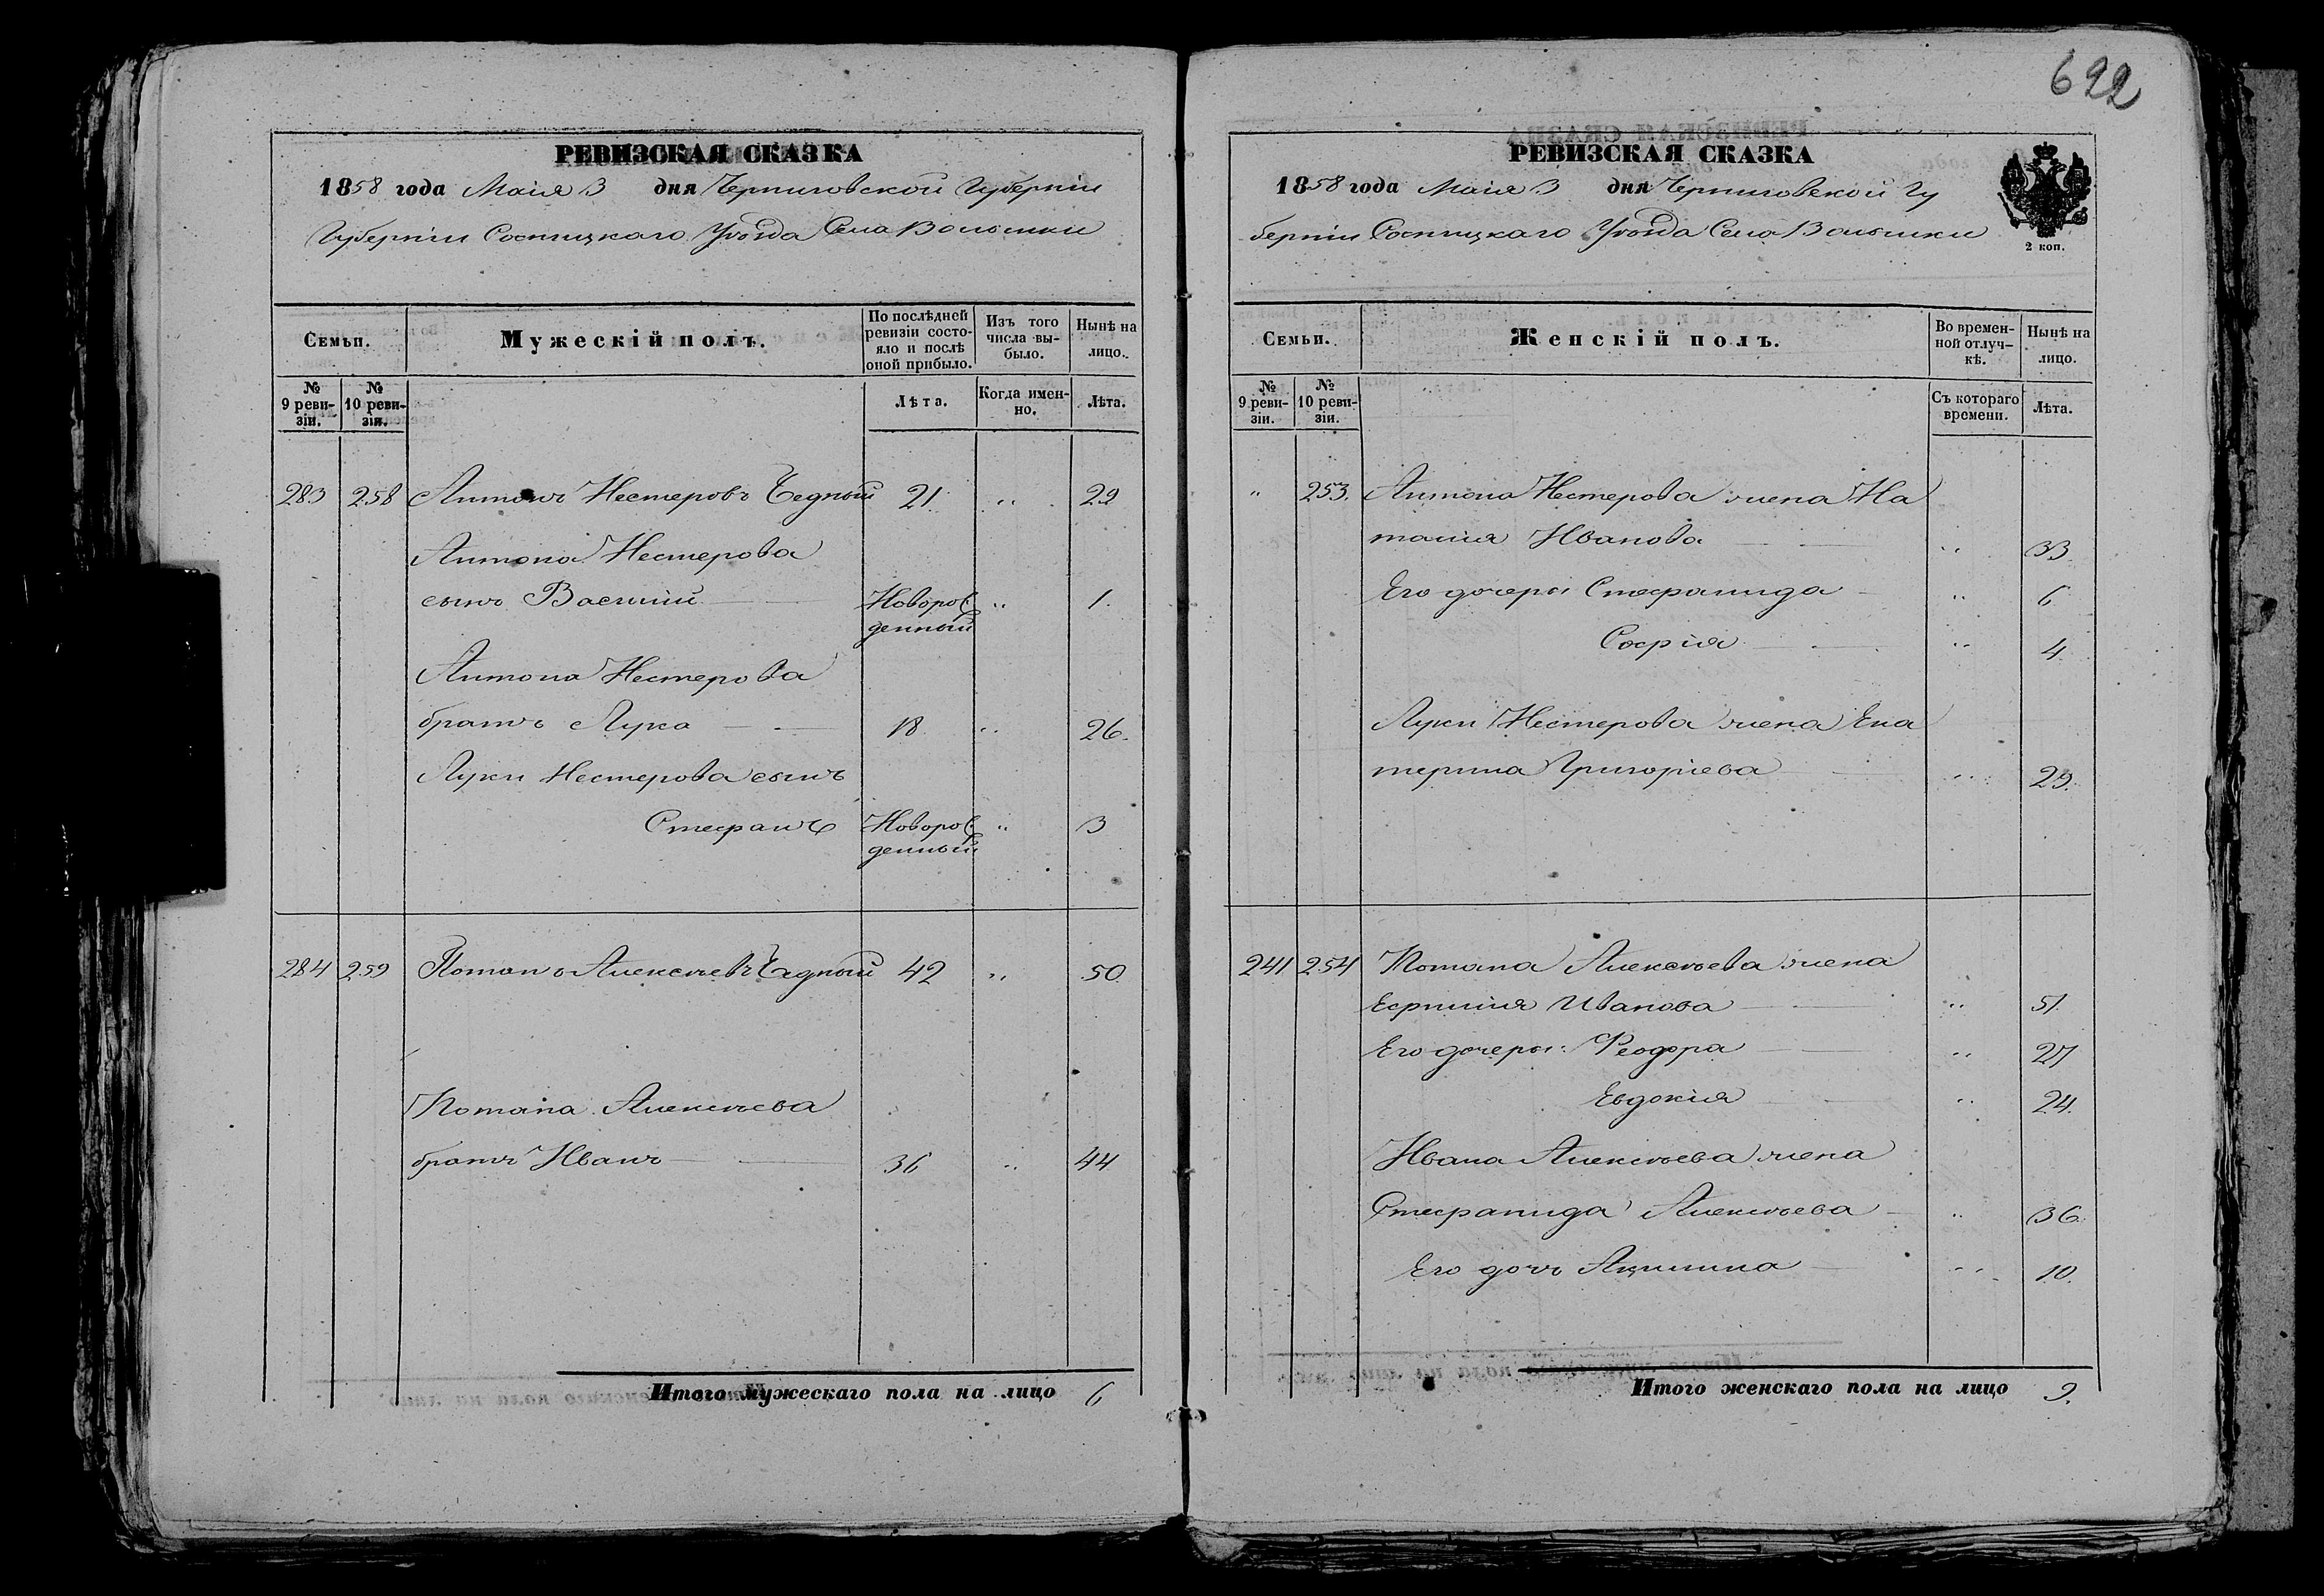 692
РЕВИЗСКАЯ СКАЗКА
1858 года Маія 3 дня Черниговской Губерніи
Губерніи Сосницкаго Уѣзда Села Волынки
Семьи.
Мужескій полъ.
По послѣдней ревизіи состояло и послѣ оной прибыло.
Изъ того числа выбыло.
Нынѣ на лицо.
№ 9 ревизіи.
№ 10 ревизіи.
Лѣта.
Когда именно.
Лѣта.
283 258 Антонъ Нестеровъ 21 " 29
Антона Нестерова
сынъ Василій Новорож денный " 1.
Антона Нестерова
братъ Лука 18 " 26.
Луки Нестерова сынъ
Стефанъ Новорож денный " 3
284 259 Потапъ Алексѣевъ 42 " 50
Потапа Алексѣева
братъ Иванъ 36 " 44
Итого мужескаго пола на лицо 6
РЕВИЗСКАЯ СКАЗКА
1858 года Маія 3 дня Черниговской Гу
берніи Сосницкаго Уѣзда Села Волынки
2 коп.
Семьи.
Женскій полъ.
Во временной отлучкѣ.
Нынѣ на лицо.
№ 9 ревизіи.
№ 10 ревизіи.
Съ котораго времени.
Лѣта.
" 253. Антона Нестерова жена На
талія Иванова " 33
Его дочери Стефанида " 6
Софія " 4
Луки Нестерова жена Ека
терина Григоріева " 29.
241 254 Потапа Алексѣева жена
Ефимія Иванова " 51.
Его дочери: Феодора " 27
Евдокія " 24.
Ивана Алексѣева жена
Стефанида Алексѣева " 36.
Его дочь Акилина " 10.
Итого женскаго пола на лицо 9.